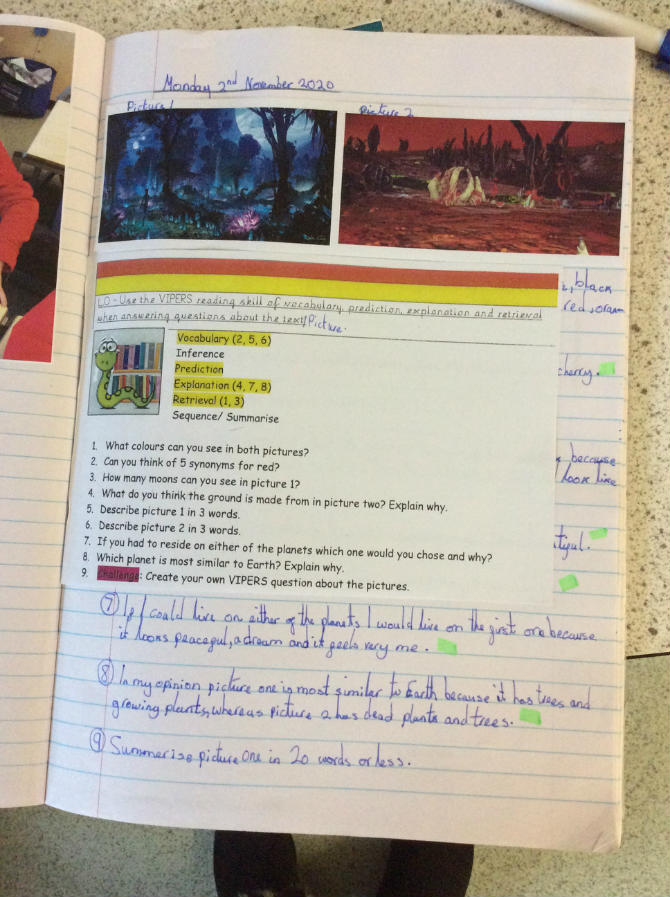 Monday 2nd November 2020
Picture 1
Picture 2
L.O - Use the VIPERS reading skill of vocabulary, prediction, explanation and retrieval
when answering questions about the text/Picture.
Vocabulary (2, 5, 6)
Inference
Prediction
Explanation (4, 7, 8)
Retrieval (1, 3)
Sequence/ Summarise
1. What colours can you see in both pictures?
2. Can you think of 5 synonyms for red?
3. How many moons can you see in picture 1?
4. What do you think the ground is made from in picture two? Explain why.
5. Describe picture 1 in 3 words.
6. Describe picture 2 in 3 words.
7. If you had to reside on either of the planets which one would you chose and why?
8. Which planet is most similar to Earth? Explain why.
9. Challenge: Create your own VIPERS question about the pictures.
black
red, oran
cherry.
because
look like
tiful.
7 If I could live on either of the planets I would live on the first one because
it looks peaceful, a dream and it feels very me.
8 In my opinion picture one is most similar to Earth because it has trees and
growing plants, whereas picture 2 has dead plants and trees.
9 Summerise picture one in 20 words or less.